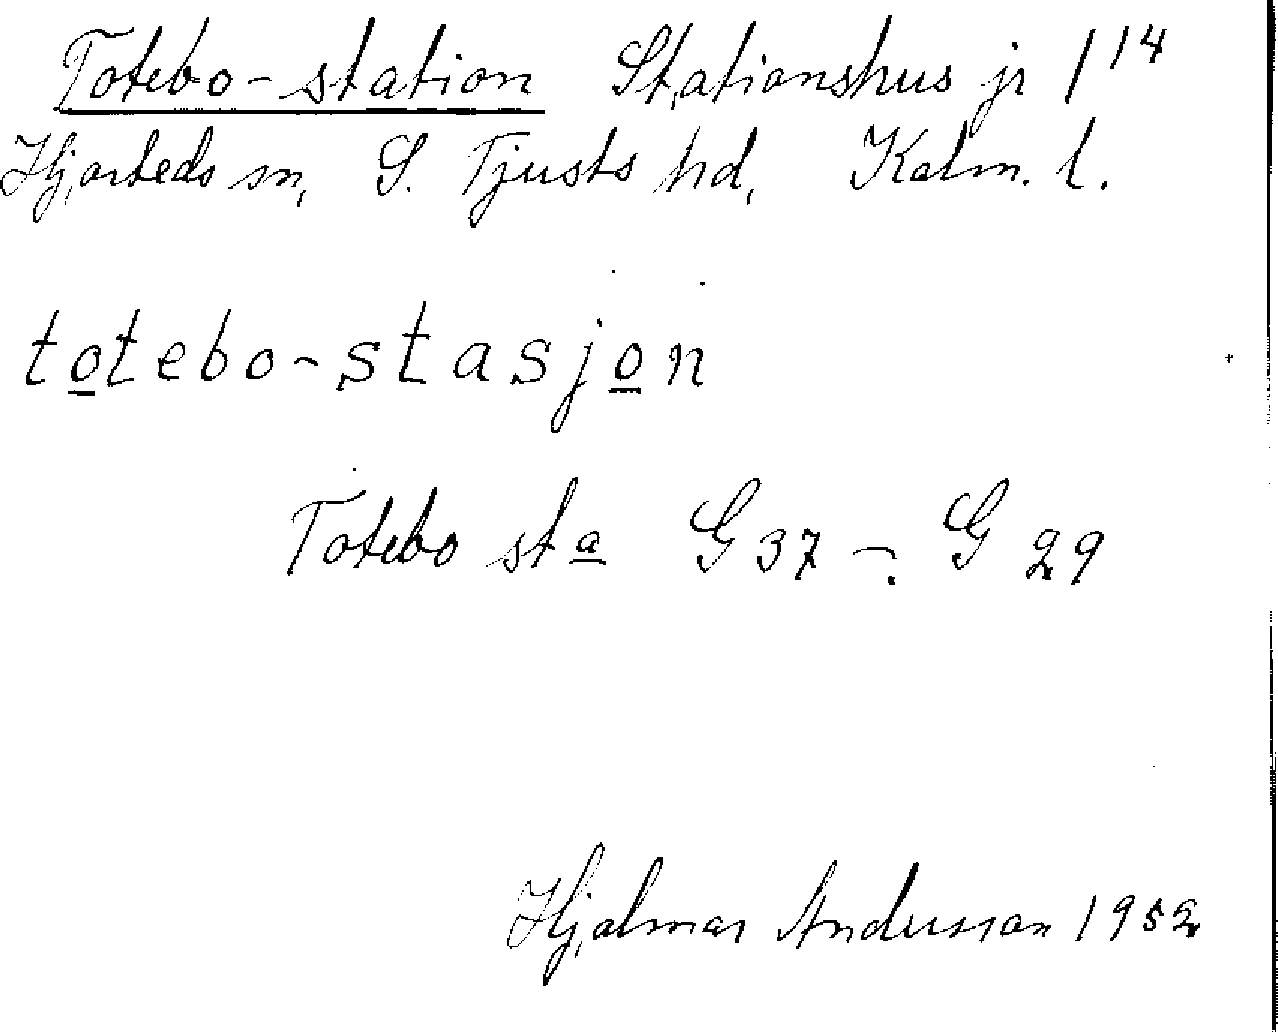 Totebo-station Stationshus jr 1¹⁴
Hjorteds sn, S. Tjusts hd, Kalm. l.
totebo-stasjon
Totebo sta G 37 -:- G 29
Hjalmar Andersson 1952